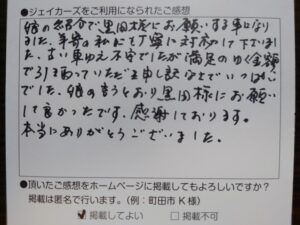 ●ジェイカーズをご利用になられたご感想
娘の意見で黒田様にお願いする事になり
ました。年寄の私にも丁寧に対応して下さい
ました。古い車ゆえ不安でしたが満足のゆく金額
で引き取っていただき申し訳なさでいっぱい
でした。娘の言うとおり黒田様にお願い
して良かったです。感謝しております。
本当にありがとうございました。
●頂いたご感想をホームページに掲載してもよろしいですか？
掲載は匿名で行います。（例：町田市 K 様）
☑ 掲載してよい □ 掲載不可